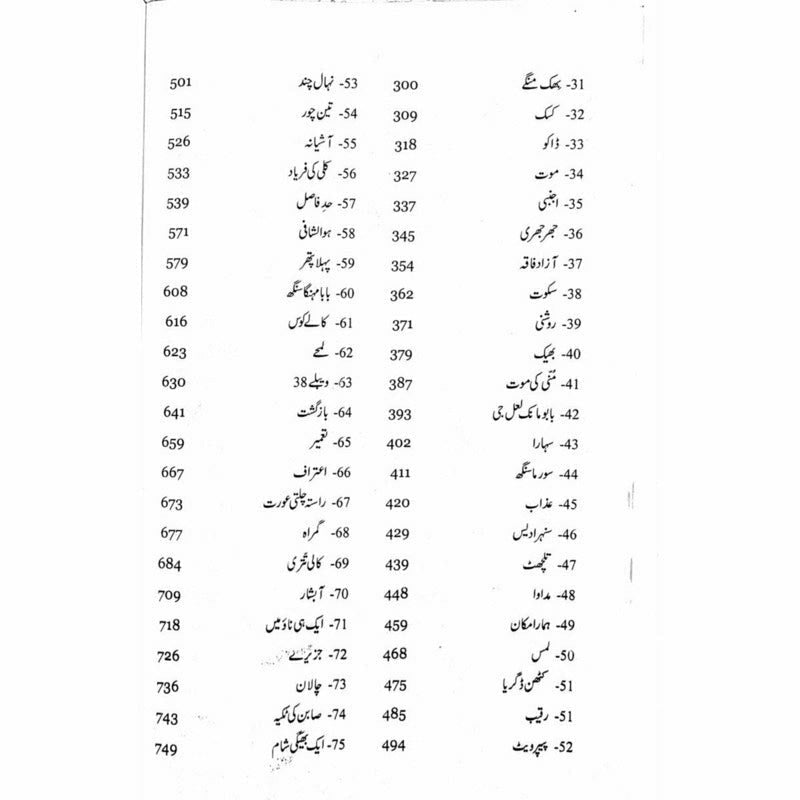 31- بھک منگے 300
32- کسک 309
33- ڈاکو 318
34- موت 327
35- اجنبی 337
36- جھرجھری 345
37- آزاد فاقہ 354
38- سکوت 362
39- روشنی 371
40- بھیک 379
41- مُنّی کی موت 387
42- بابو مانک لعل جی 393
43- سہارا 402
44- سورما سنگھ 411
45- عذاب 420
46- سنہرا دیس 429
47- تلچھٹ 439
48- مداوا 448
49- ہمارا مکان 459
50- لمس 468
51- کٹھن ڈگریا 475
51- رقیب 485
52- پیپر ویٹ 494
53- نہال چند 501
54- تین چور 515
55- آشیانہ 526
56- کلی کی فریاد 533
57- حدِ فاصل 539
58- ہوالشافی 571
59- پہلا پتھر 579
60- بابا مہنگا سنگھ 608
61- کالے کوس 616
62- لمحے 623
63- ویبلے 38 630
64- بازگشت 641
65- تعمیر 659
66- اعتراف 667
67- راستہ چلتی عورت 673
68- گمراہ 677
69- کالی تتری 684
70- آبشار 709
71- ایک ہی ناؤ میں 718
72- جزیرے 726
73- چالان 736
74- صابن کی ٹکیہ 743
75- ایک بھیگی شام 749